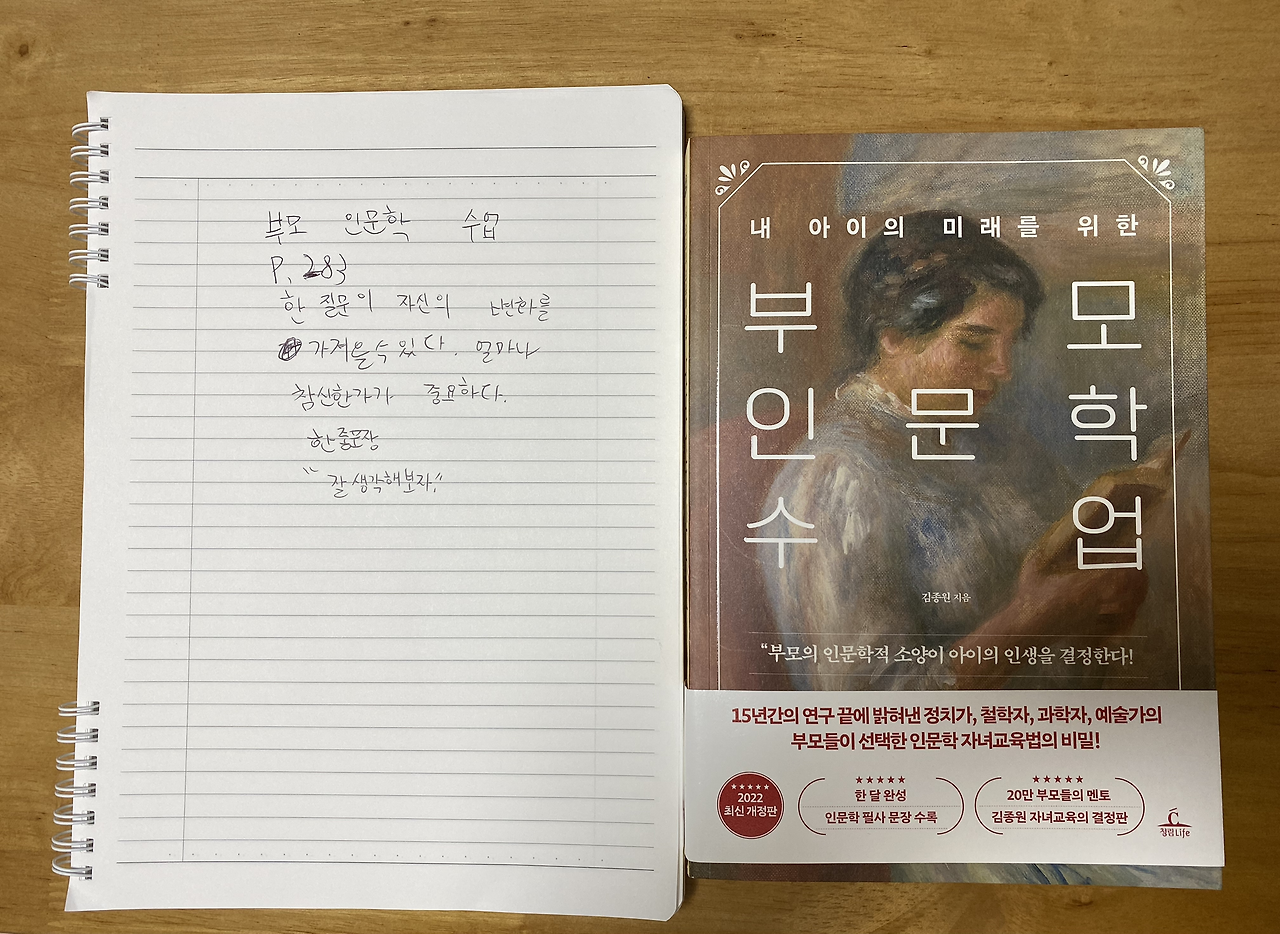 부모 인문학 수업
P. 283
한 질문이 자신의 변화를
가져올 수 있다. 얼마나
참신한가가 중요하다.
한줄문장
"잘 생각해보자."
내 아이의 미래를 위한
부모
인문학
수업
김종원 지음
“부모의 인문학적 소양이 아이의 인생을 결정한다!
15년간의 연구 끝에 밝혀낸 정치가, 철학자, 과학자, 예술가의
부모들이 선택한 인문학 자녀교육법의 비밀!
★★★★★
2022
최신 개정판
★★★★★
한 달 완성
인문학 필사 문장 수록
★★★★★
20만 부모들의 멘토
김종원 자녀교육의 결정판
청림Life